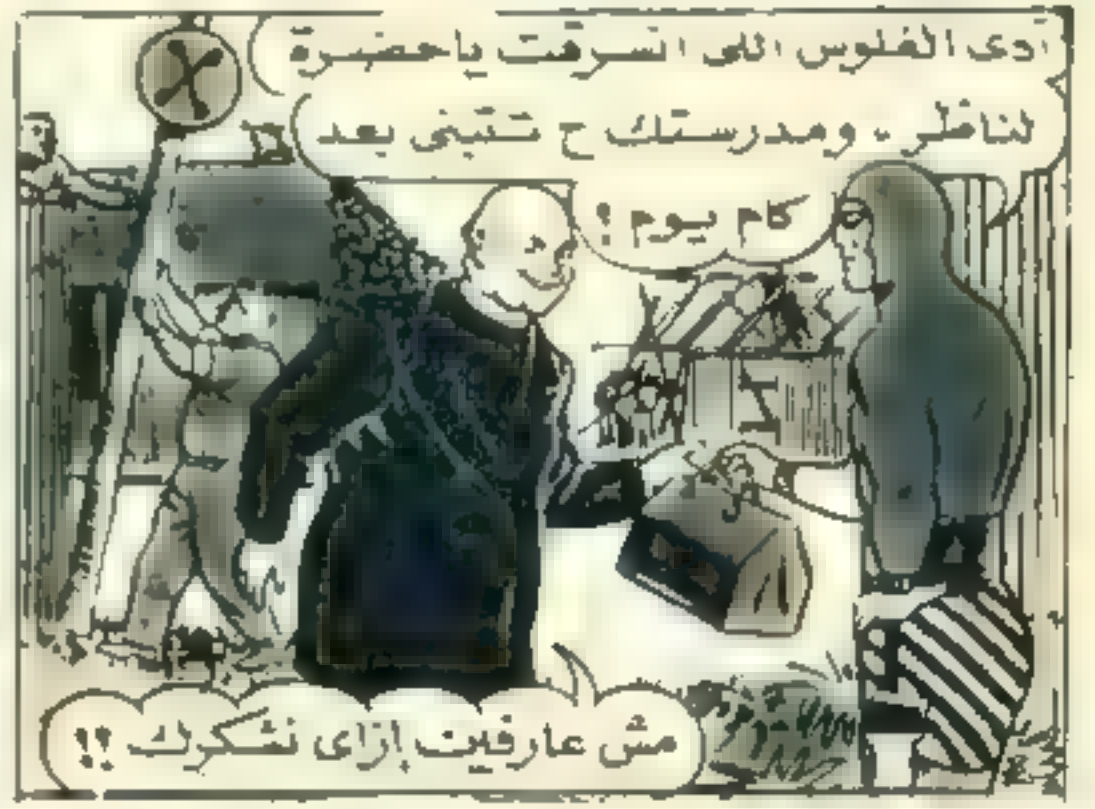 آدى الفلوس اللى اتسرقت ياحضرة
لناظر .. ومدرستك ح تتبنى بعد
كام يوم ؟
مش عارفين إزاى نشكرك !!